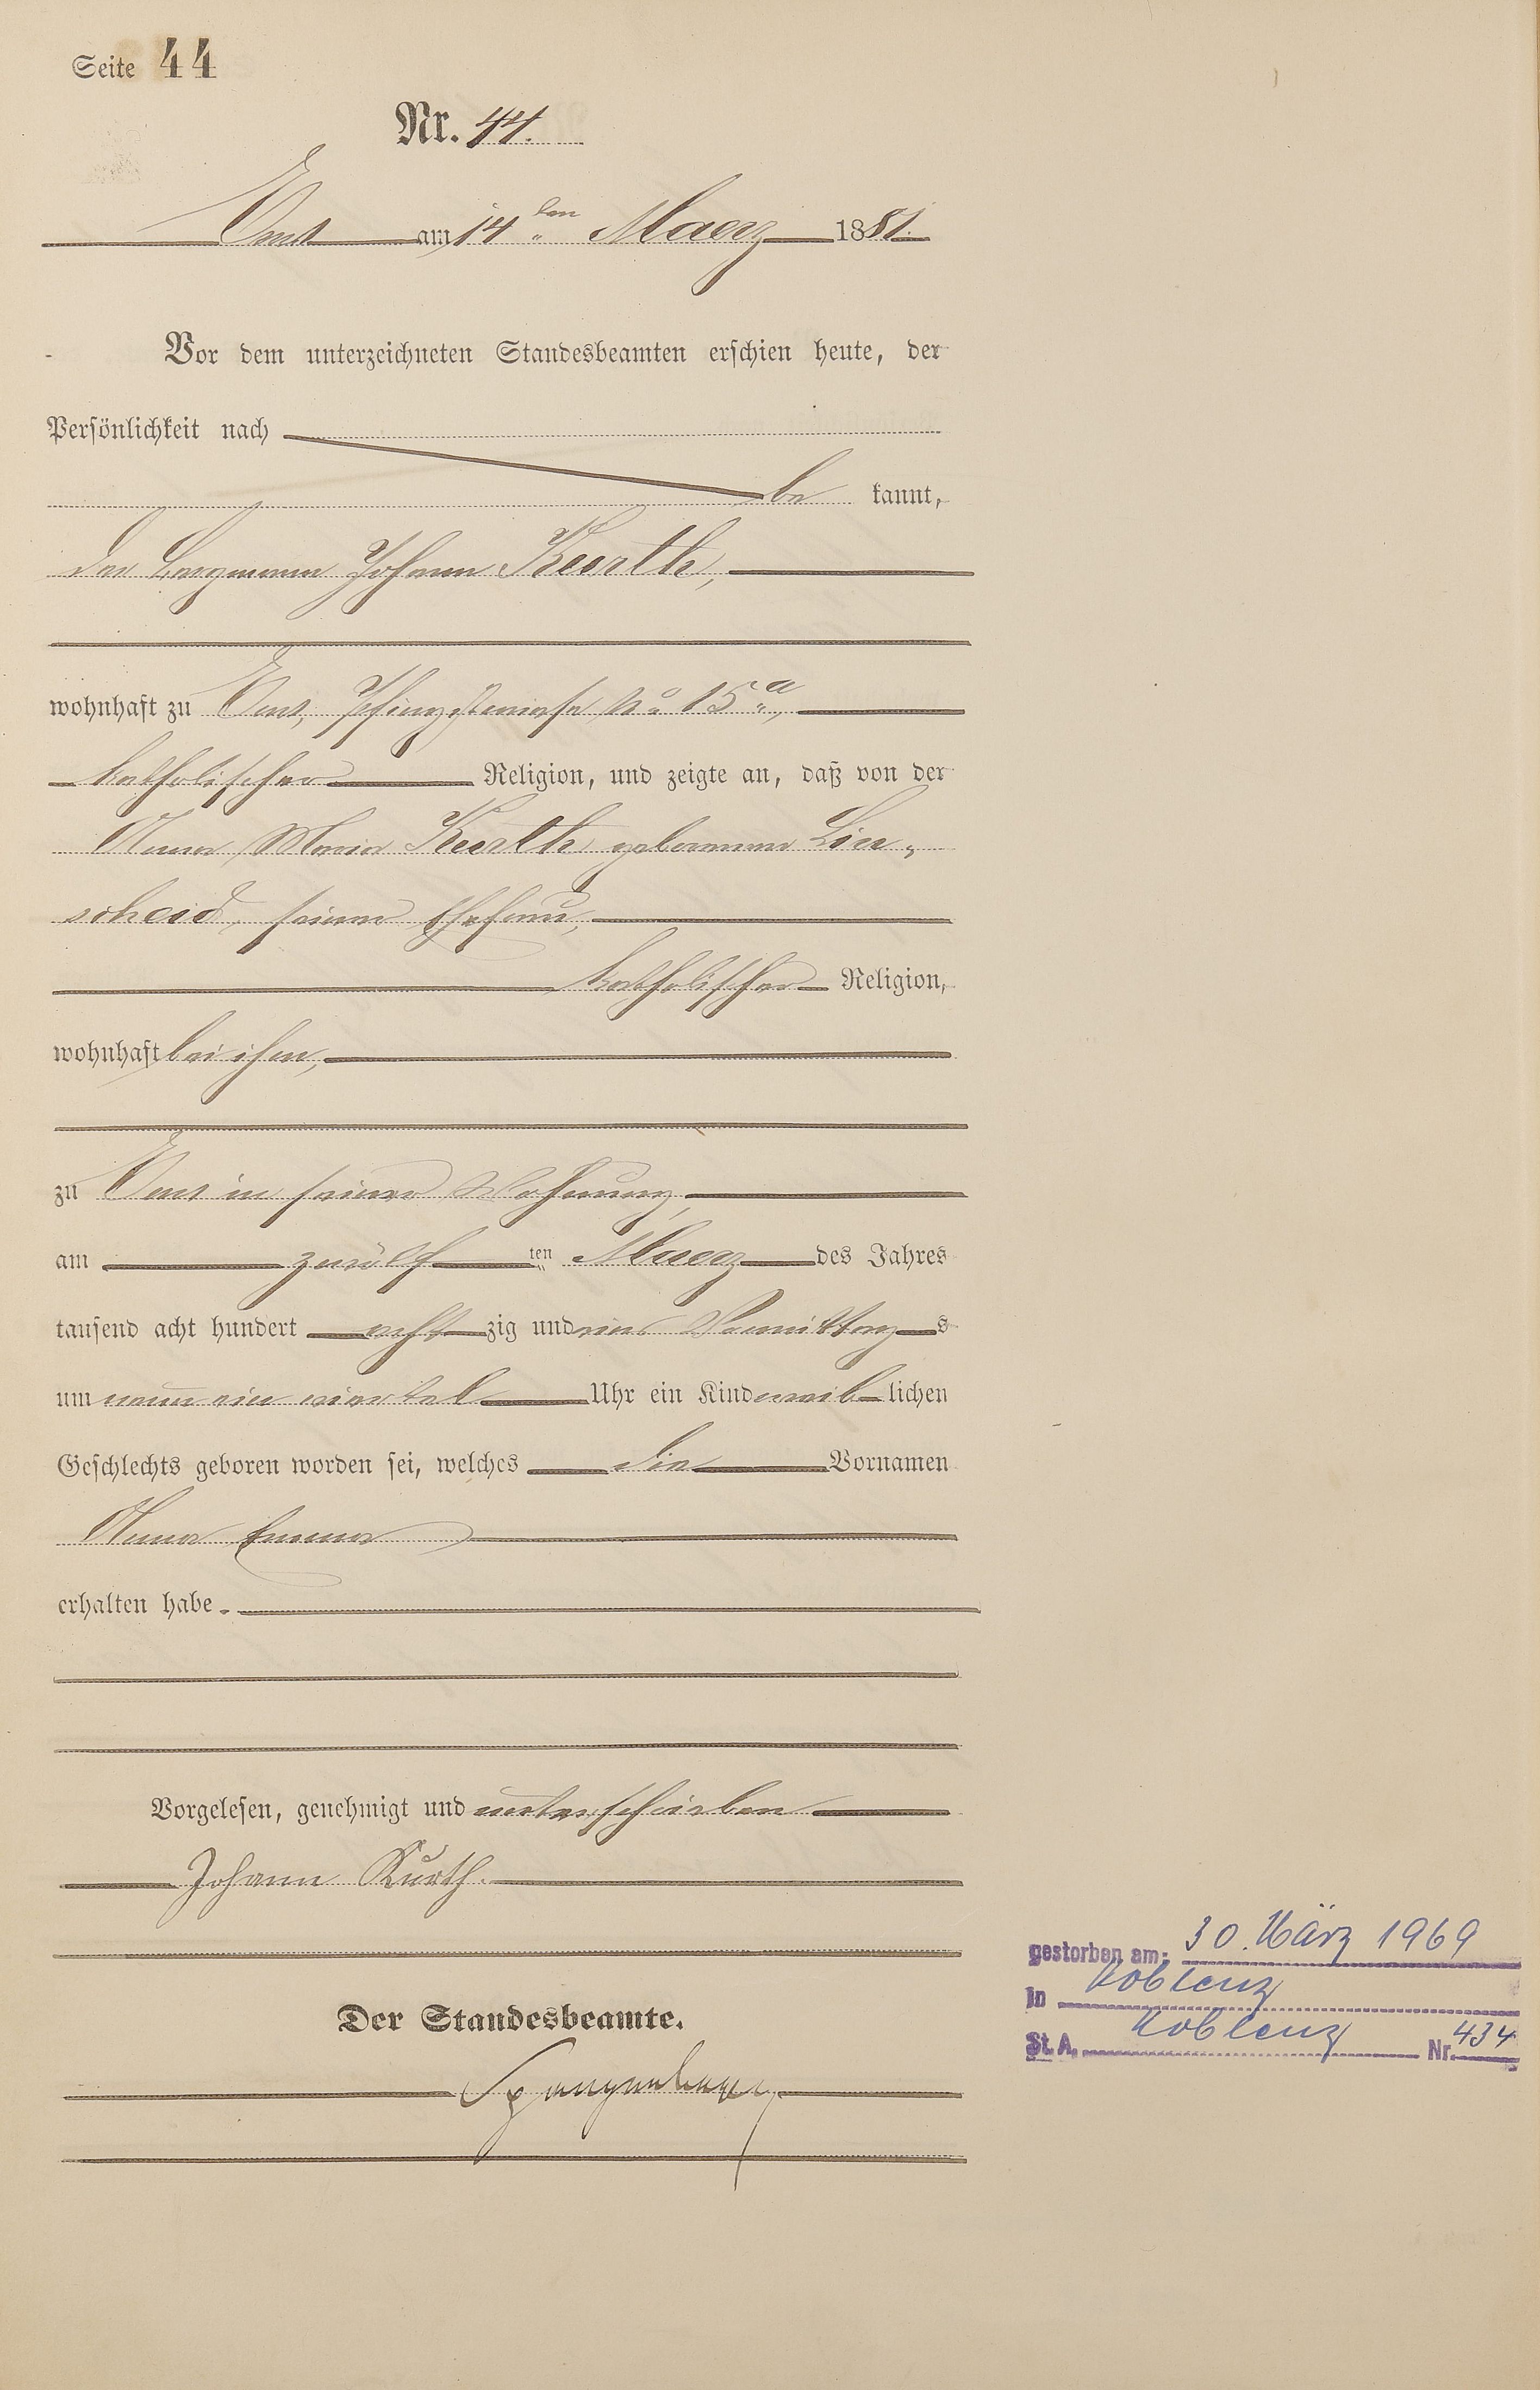 Seite 44
Nr. 44.
Ems am 14ten Maerz 1881.
Vor dem unterzeichneten Standesbeamten erschien heute, der
Persönlichkeit nach
be kannt,
der Bergmann Johann Kurth,
wohnhaft zu Ems, Pfingstwiese No 15a,
katholischer Religion, und zeigte an, daß von der
Anna Maria Kurth geborenen Lin-
scheid, seiner Ehefrau,
katholischer Religion,
wohnhaft bei ihm,
zu Ems in seiner Wohnung,
am zwölften Maerz des Jahres
tausend acht hundert achtzig und eins Vormittags
um neun ein viertel Uhr ein Kind weiblichen
Geschlechts geboren worden sei, welches die Vornamen
Anna Emma
erhalten habe.
Vorgelesen, genehmigt und unterschrieben
Johann Kurth.
Der Standesbeamte.
Spangenberg
gestorben am: 30. März 1969
in Koblenz
St. A. Koblenz Nr. 434